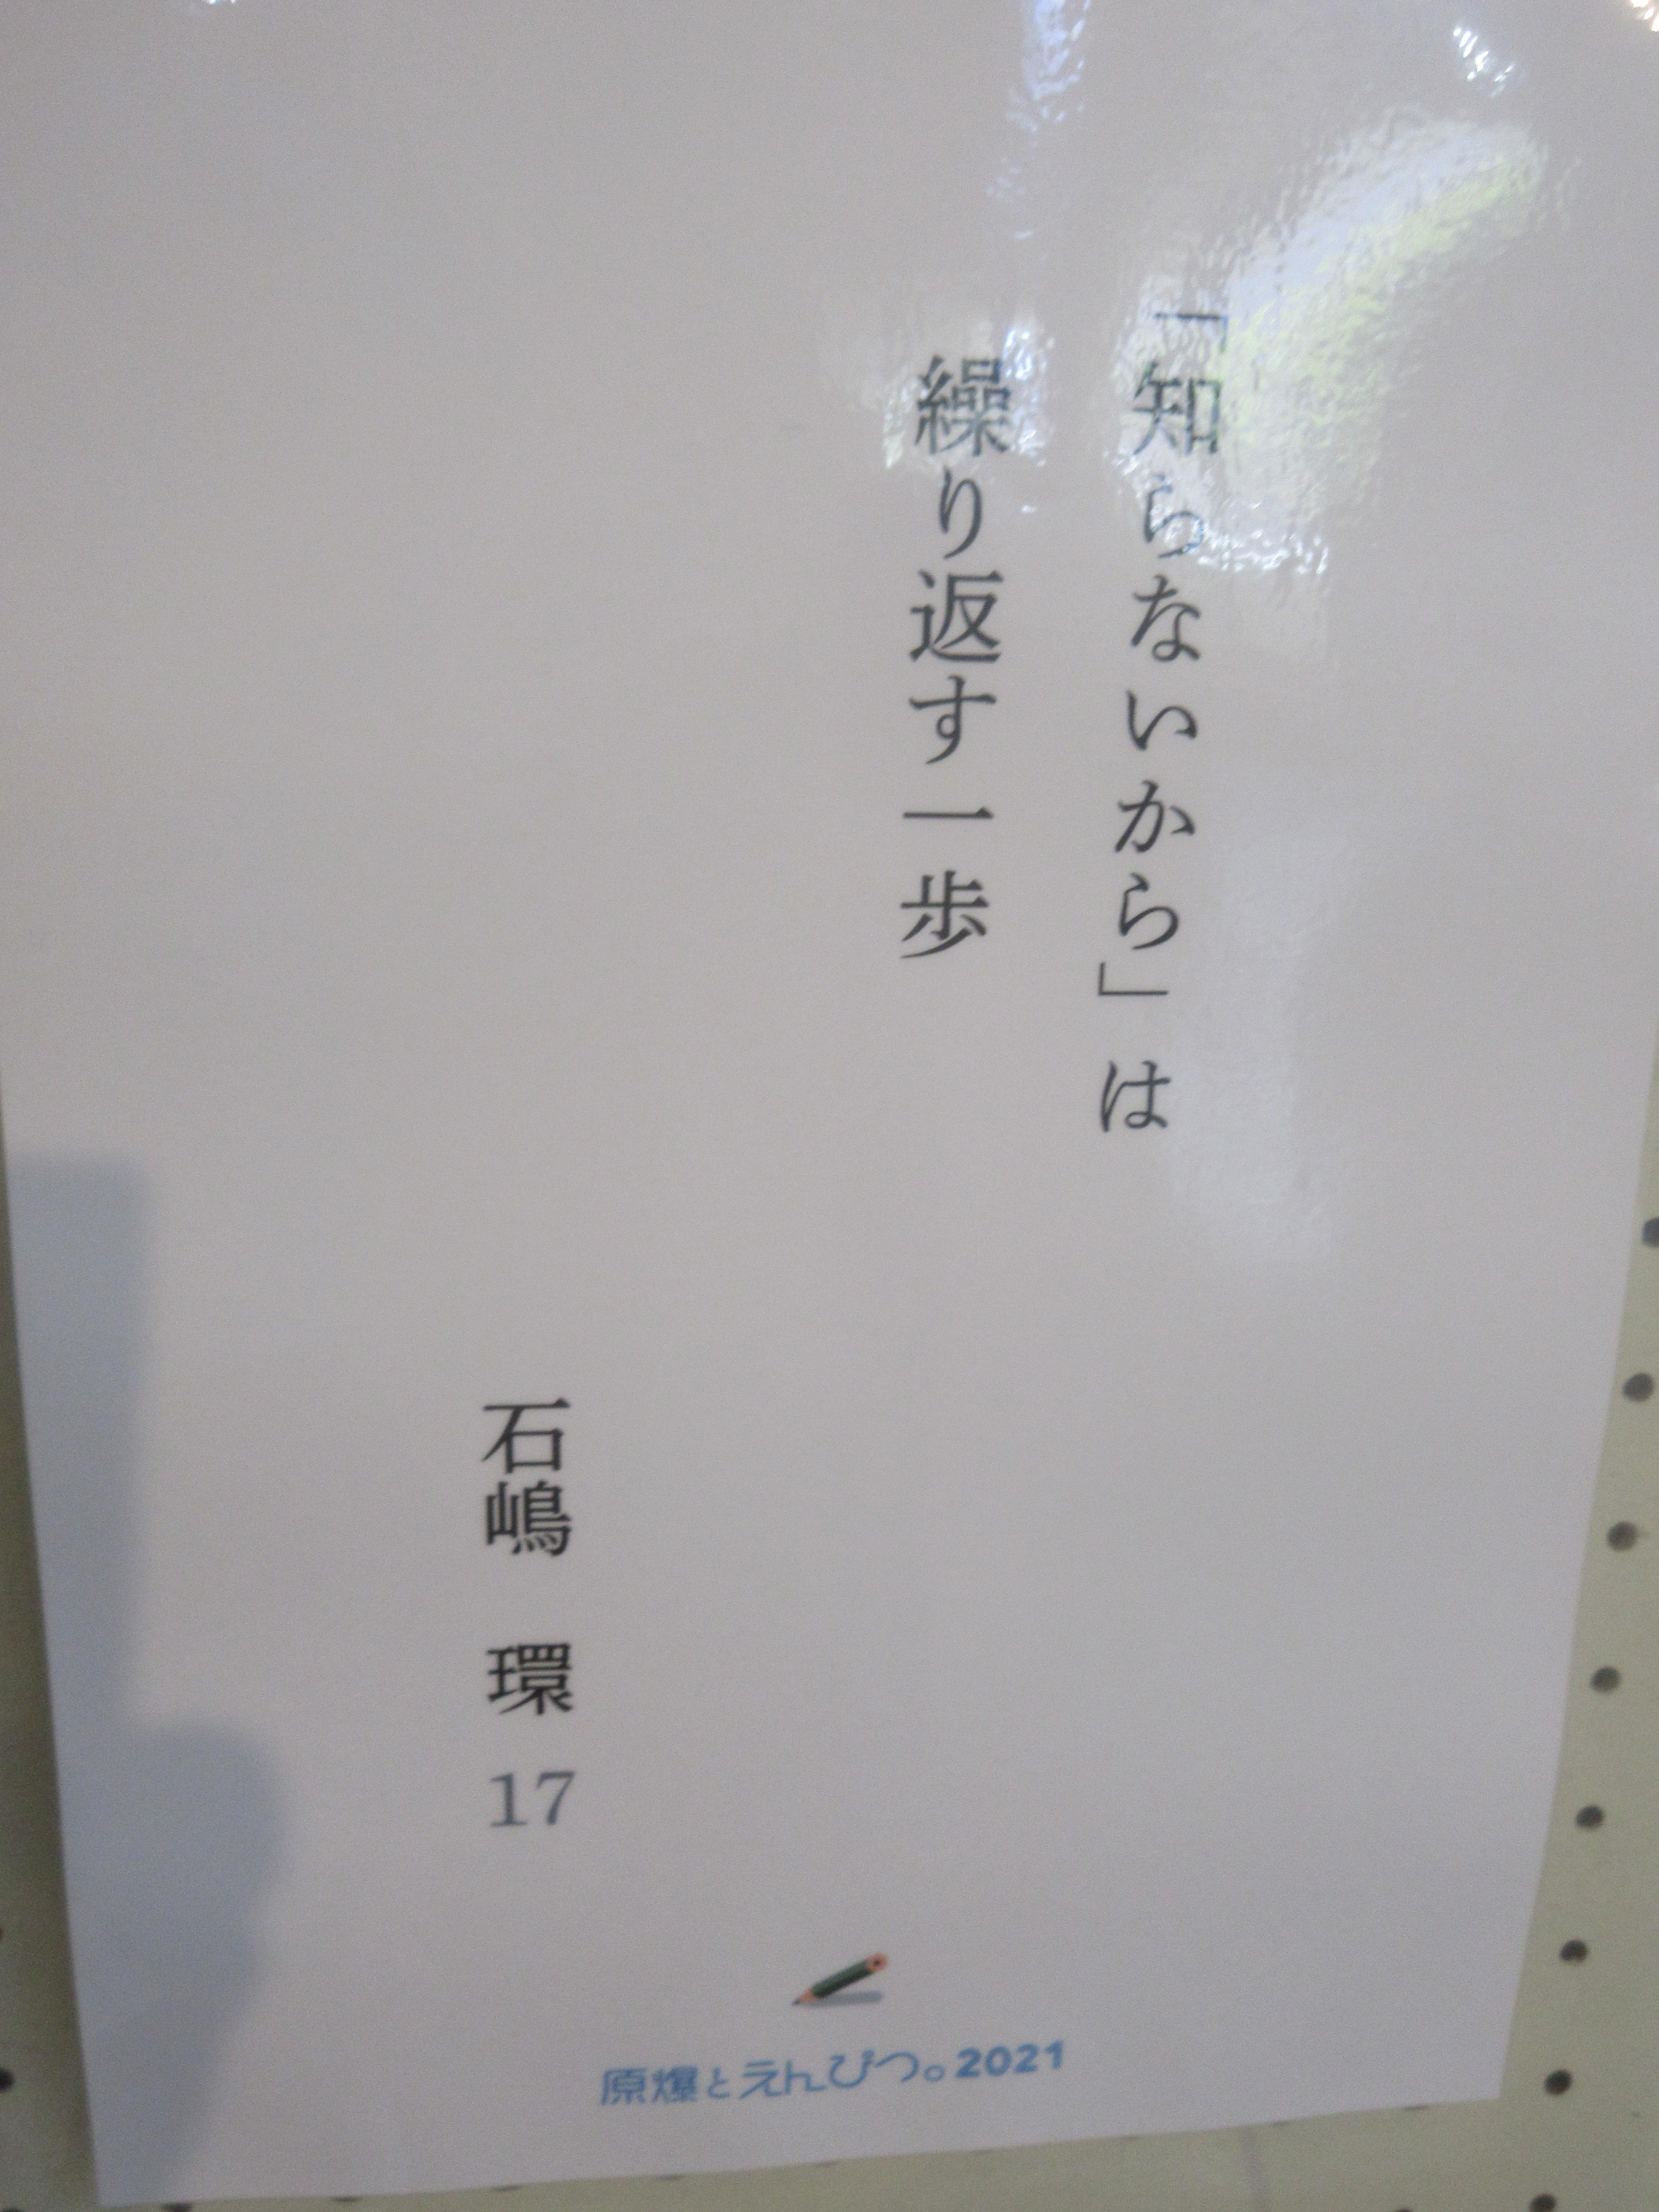 「知らないから」は
繰り返す一歩
石嶋 環 17
原爆とえんぴつ。2021